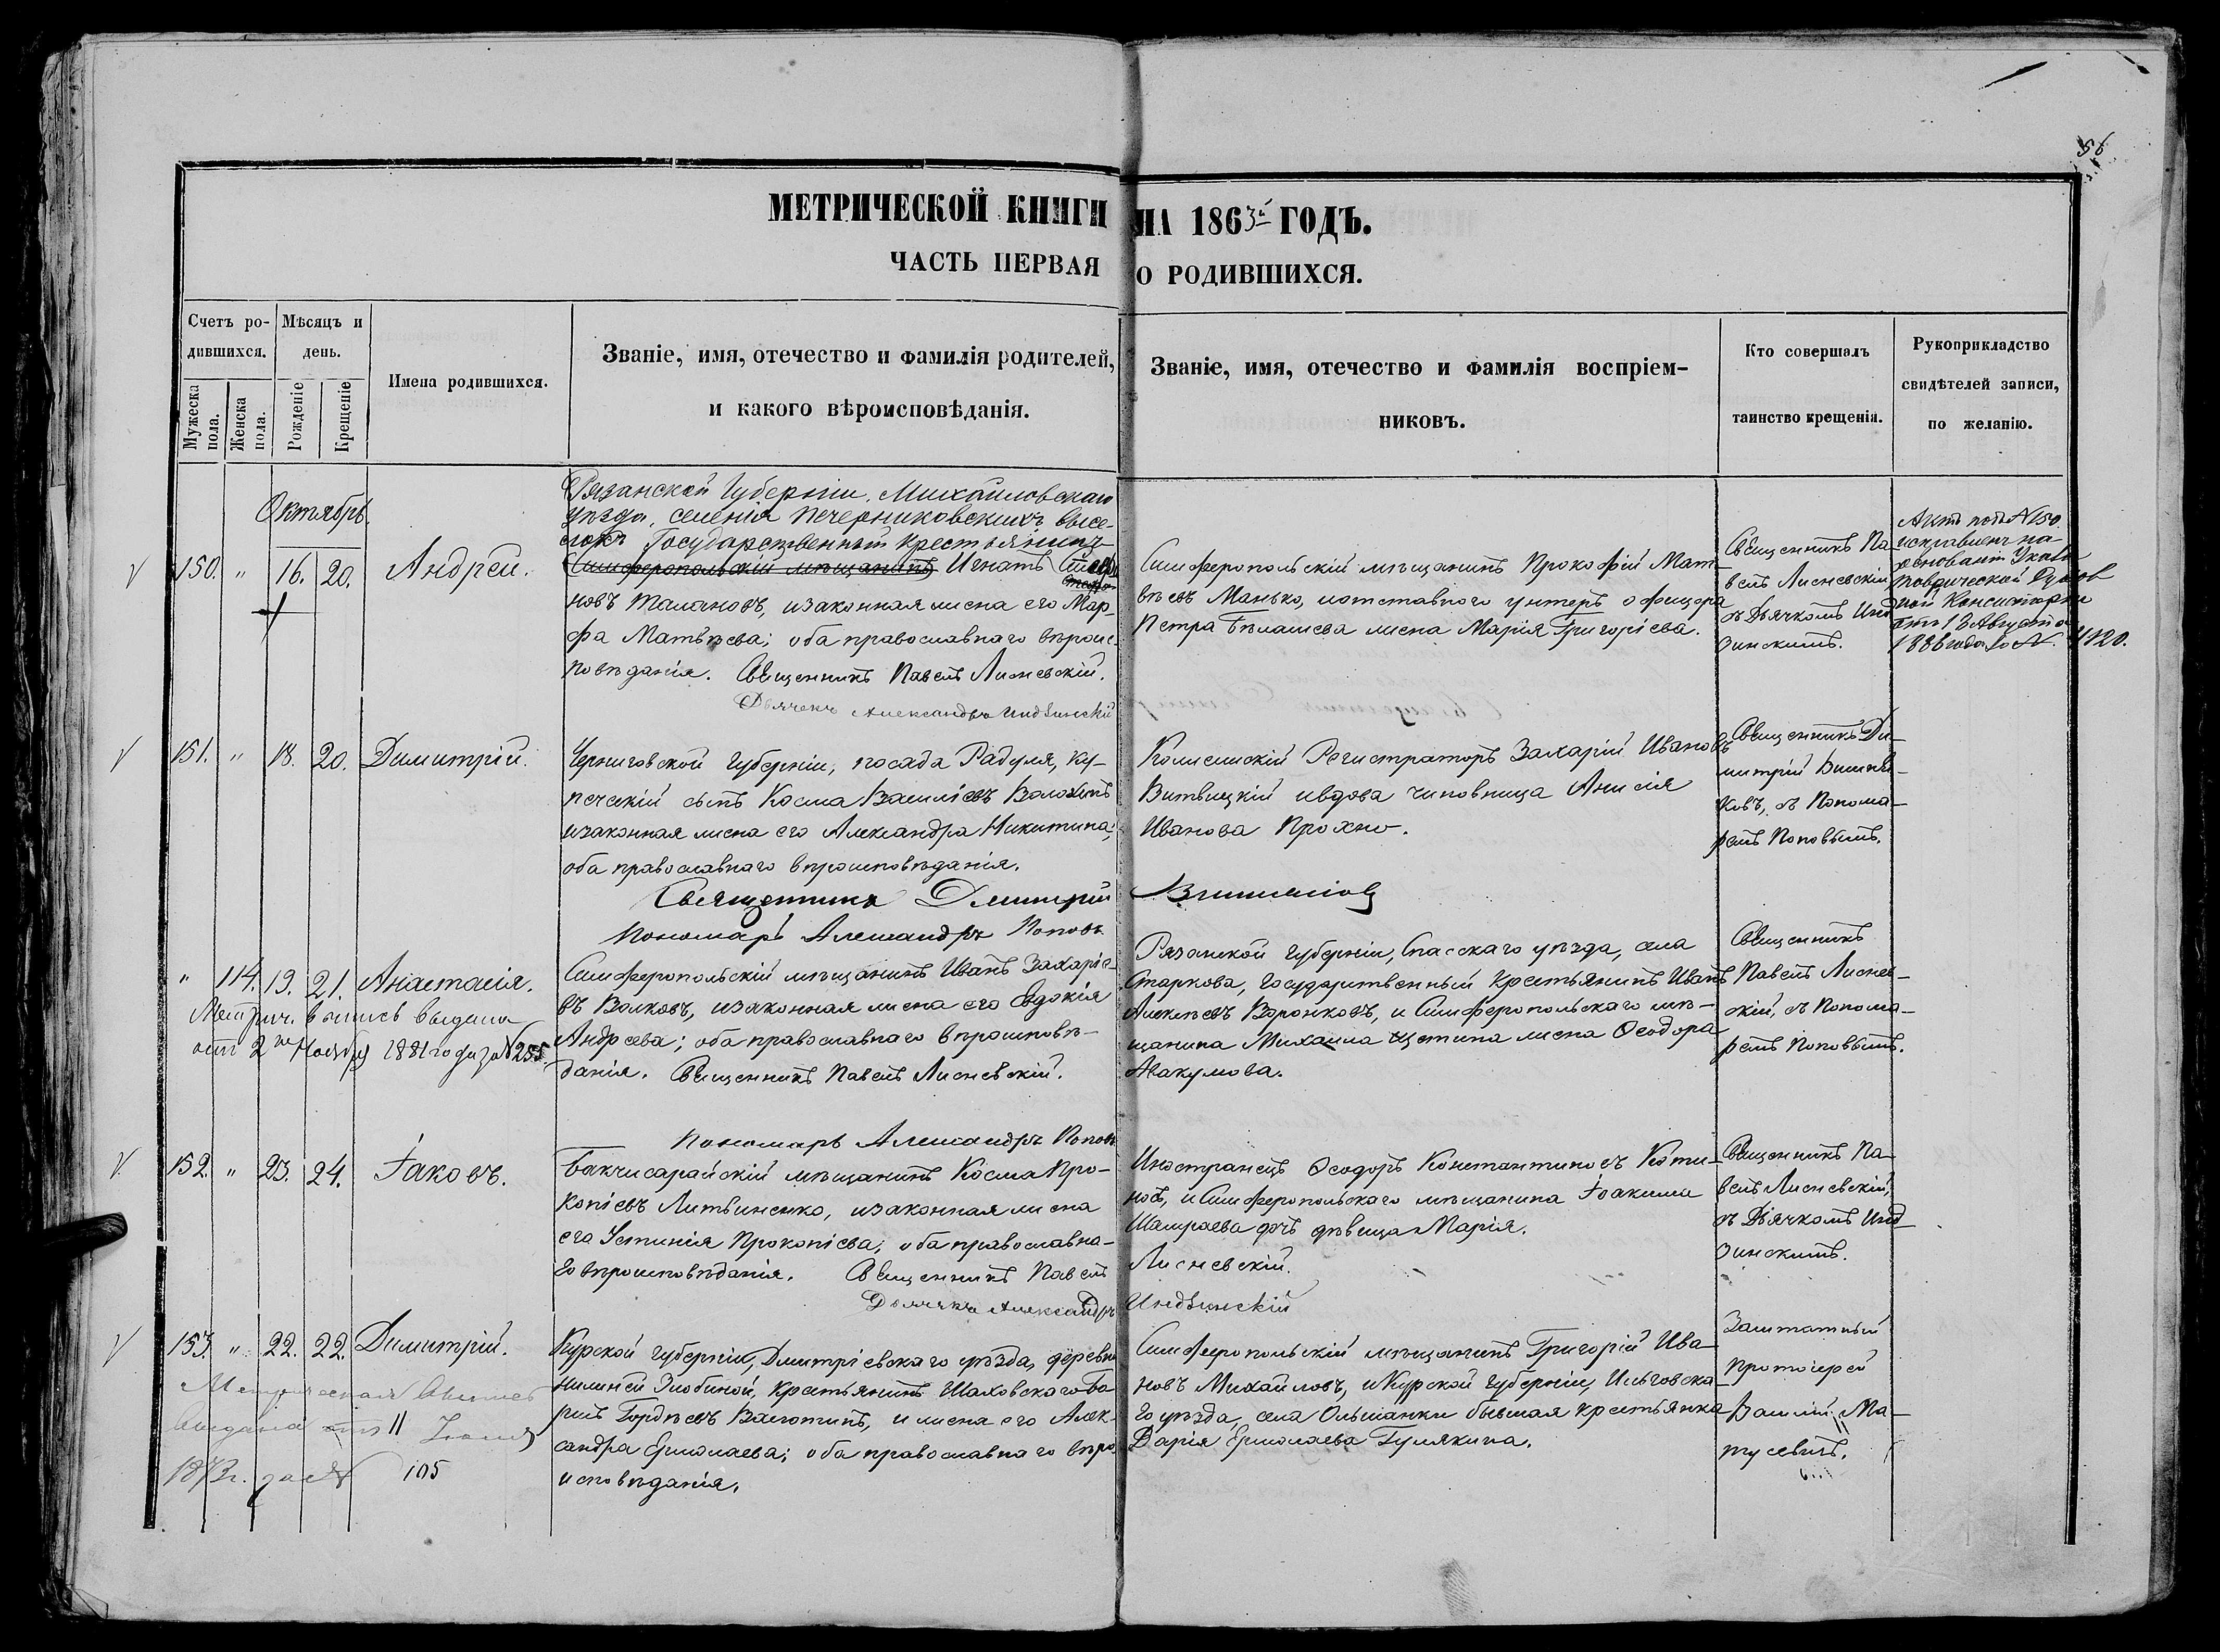 56
МЕТРИЧЕСКОЙ КНИГИ НА 1863й ГОДЪ.
ЧАСТЬ ПЕРВАЯ О РОДИВШИХСЯ.
Счетъ ро-
дившихся.
Мужеска пола.
Женска пола.
Мѣсяцъ и
день.
Рожденіе
Крещеніе
Имена родившихся.
Званіе, имя, отечество и фамилія родителей,
и какого вѣроисповѣданія.
Званіе, имя, отечество и фамилія воспріем-
никовъ.
Кто совершалъ
таинство крещенія.
Рукоприкладство
свидѣтелей записи,
по желанію.
Октябрь.
150. " 16. 20. Андрей.
Рязанской Губерніи, Михайловскаго
уѣзда, селенія Печерниковскихъ высе-
локъ Государственный крестьянинъ
Симферопольскій мѣщанинъ Игнатъ
новъ Талановъ, и законная жена его Мар-
фа Матвѣева; оба православнаго вѣроис-
повѣданія. Священникъ Павелъ Лисневскій.
Дьячекъ Александръ Индзинскій
Симферопольскій мѣщанинъ Прокофій Мат-
вѣевъ Манько, и отставного унтеръ офицера
Петра Бѣлашева жена Марія Григоріева.
Священникъ Па-
велъ Лисневскій
съ Дьячкомъ Инд-
зинскимъ.
Актъ подъ N 150.
исправленъ на
основаніи Указа
Таврической Духов
ной Консисторіи
отъ 18 Августа
1886 года за N. 4120.
151. " 18. 20. Димитрій.
Черниговской губерніи, посада Радуля, ку-
печескій сынъ Косма Василіевъ Волохинъ
и законная жена его Александра Никитина;
оба православнаго вѣроисповѣданія.
Священникъ Димитрій
Пономарь Александръ Поповъ
Колежскій Регистраторъ Захарій Ивановъ
Витвицкій и вдова чиновница Анисія
Иванова Прохно.
Священникъ Ди-
митрій
ковъ, съ Понома-
ремъ Поповымъ.
" 114. 19. 21. Анастасія.
Метрич. выпись выдана
отъ 2го Ноября 1881 года за N 255
Симферопольскій мѣщанинъ Иванъ Захаріе-
въ Волковъ, и законная жена его Евдокія
Андреева; оба православнаго вѣроисповѣ-
данія. Священникъ Павелъ Лисневскій.
Пономарь Александръ Поповъ
Рязанской губерніи, Спасскаго уѣзда, села
Старкова, государственный крестьянинъ Иванъ
Алексѣевъ Воронковъ, и Симферопольскаго мѣ-
щанина Михаила Щетина жена Ѳеодора
Авакумова.
Священникъ
Павелъ Лиснев-
скій, съ Понома-
ремъ Поповымъ.
152. " 23. 24. Іаковъ.
Бакчисарайскій мѣщанинъ Косма Про-
копіевъ Литвиненко, и законная жена
его Устинія Прокопіева; оба православна-
го вѣроисповѣданія. Священникъ Павелъ Лисневскій.
Дьячекъ Александръ Индзинскій
Иностранецъ Ѳеодоръ Константиновъ
и Симферопольскаго мѣщанина Іоакима
Шамраева дочь дѣвица Марія.
Священникъ Па-
велъ Лисневскій,
съ Дьячкомъ Инд-
зинскимъ.
153. " 22. 22. Димитрій.
Метрическая выпись
выдана отъ 11 Іюня
1873 г. за N 105
Курской губерніи, Дмитріевскаго уѣзда, деревни
Злобиной, крестьянинъ Шаховскаго
Гордѣевъ и жена его Алек-
сандра Ермолаева; оба православнаго вѣро-
исповѣданія.
Симферопольскій мѣщанинъ Григорій Ива-
новъ Михайловъ, и Курской губерніи, Льговска-
го уѣзда, села Ольшанки бывшая крестьянка
Дарія Ермолаева Гулякина.
Заштатный
протоіерей
Василій Ма-
тусевичъ.